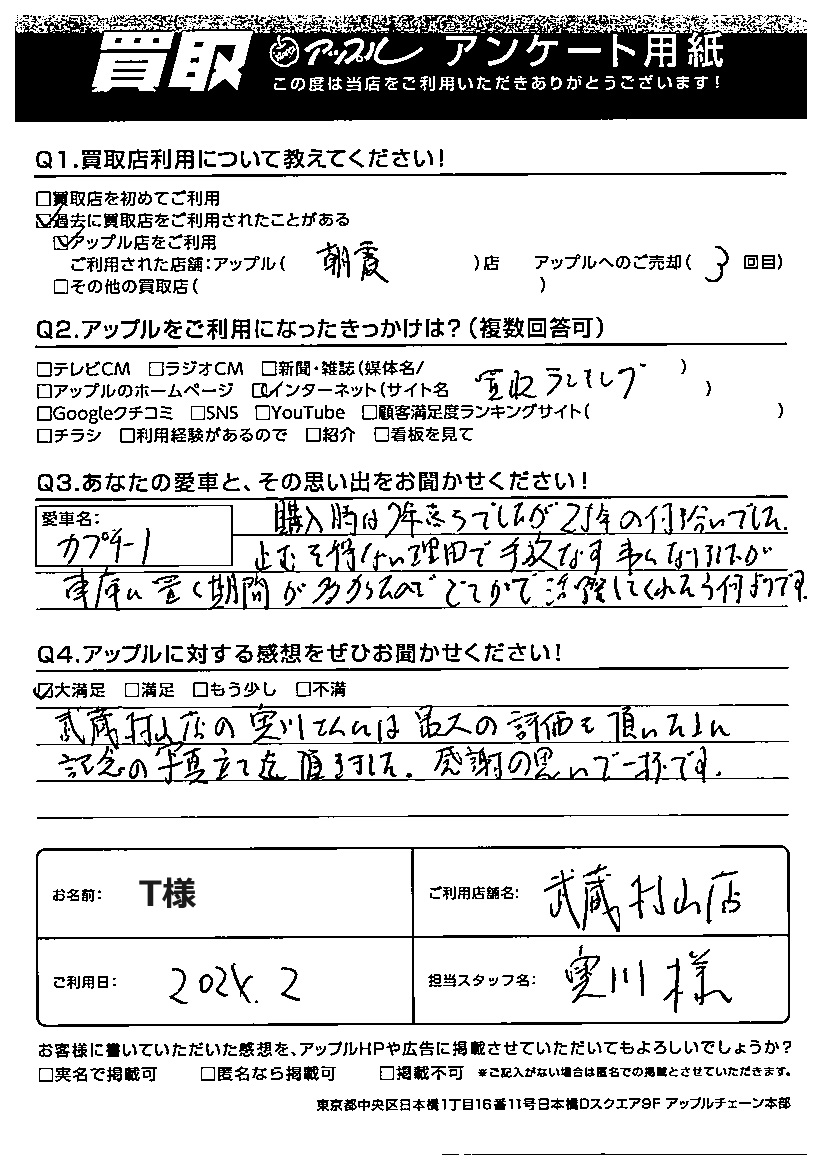 買取 アップル アンケート用紙
この度は当店をご利用いただきありがとうございます!
Q1.買取店利用について教えてください!
□買取店を初めてご利用
☑過去に買取店をご利用されたことがある
☑アップル店をご利用
ご利用された店舗:アップル( 朝霞 )店 アップルへのご売却( 3 回目)
□その他の買取店( )
Q2.アップルをご利用になったきっかけは?(複数回答可)
□テレビCM □ラジオCM □新聞・雑誌(媒体名/ )
□アップルのホームページ ☑インターネット(サイト名 買取ランキング )
□Googleクチコミ □SNS □YouTube □顧客満足度ランキングサイト( )
□チラシ □利用経験があるので □紹介 □看板を見て
Q3.あなたの愛車と、その思い出をお聞かせください!
愛車名:
カプチーノ
購入時は7年落ちでしたが25年の付き合いでした。
止むを得ない理由で手放なす事になりましたが
車庫に置く期間が多かったのでどこかで活躍してくれたら何よりです。
Q4.アップルに対する感想をぜひお聞かせください!
☑大満足 □満足 □もう少し □不満
武蔵村山店の実川さんには最大の評価を頂いた上に
記念の写真立て迄頂きました。感謝の思いで一杯です。
お名前: T様
ご利用店舗名: 武蔵村山店
ご利用日: 2024.2
担当スタッフ名: 実川様
お客様に書いていただいた感想を、アップルHPや広告に掲載させていただいてもよろしいでしょうか?
□実名で掲載可 □匿名なら掲載可 □掲載不可 ※ご記入がない場合は匿名での掲載とさせていただきます。
東京都中央区日本橋1丁目16番11号日本橋Dスクエア9F アップルチェーン本部